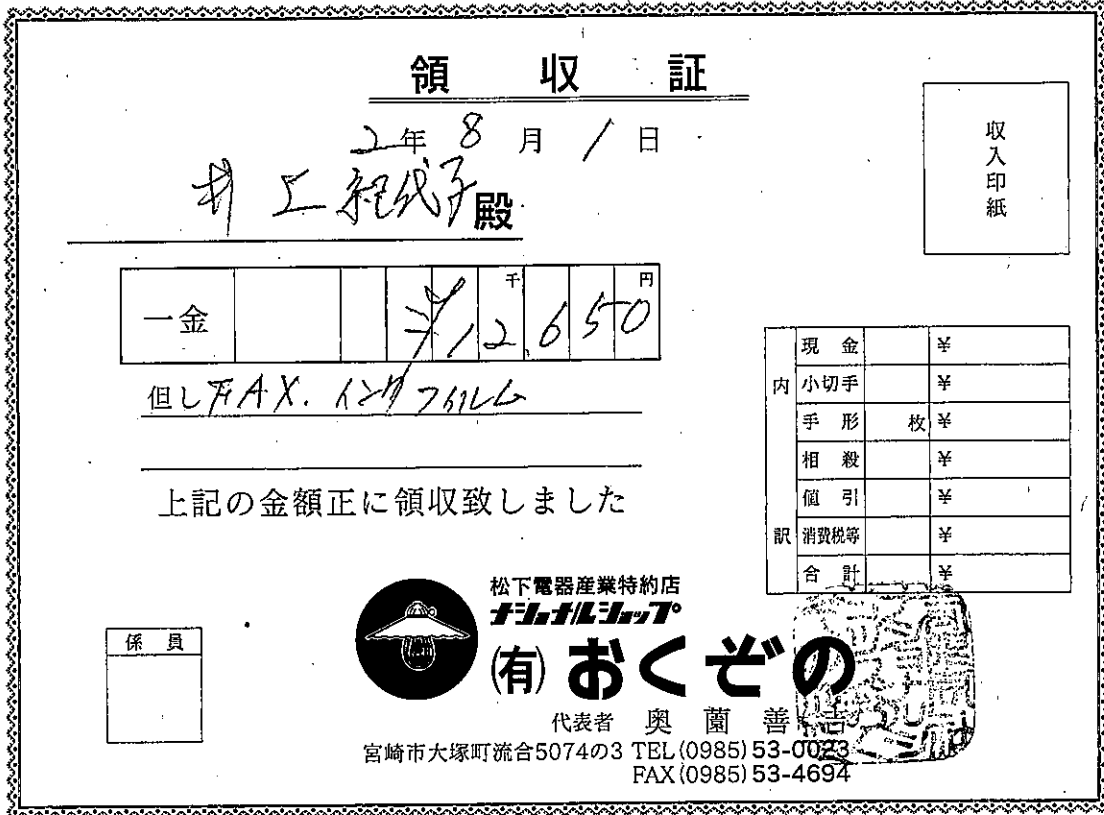 領収証
2年8月1日
井上紀代子殿
収入印紙
一金 ¥12,650 千 円
但しFAX.インクフィルム
上記の金額正に領収致しました
内訳
現金 ¥
小切手 ¥
手形 枚 ¥
相殺 ¥
値引 ¥
消費税等 ¥
合計 ¥
係員
松下電器産業特約店
ナショナルショップ
(有)おくぞの
代表者 奥薗善吉
宮崎市大塚町流合5074の3 TEL(0985)53-0023
FAX(0985)53-4694